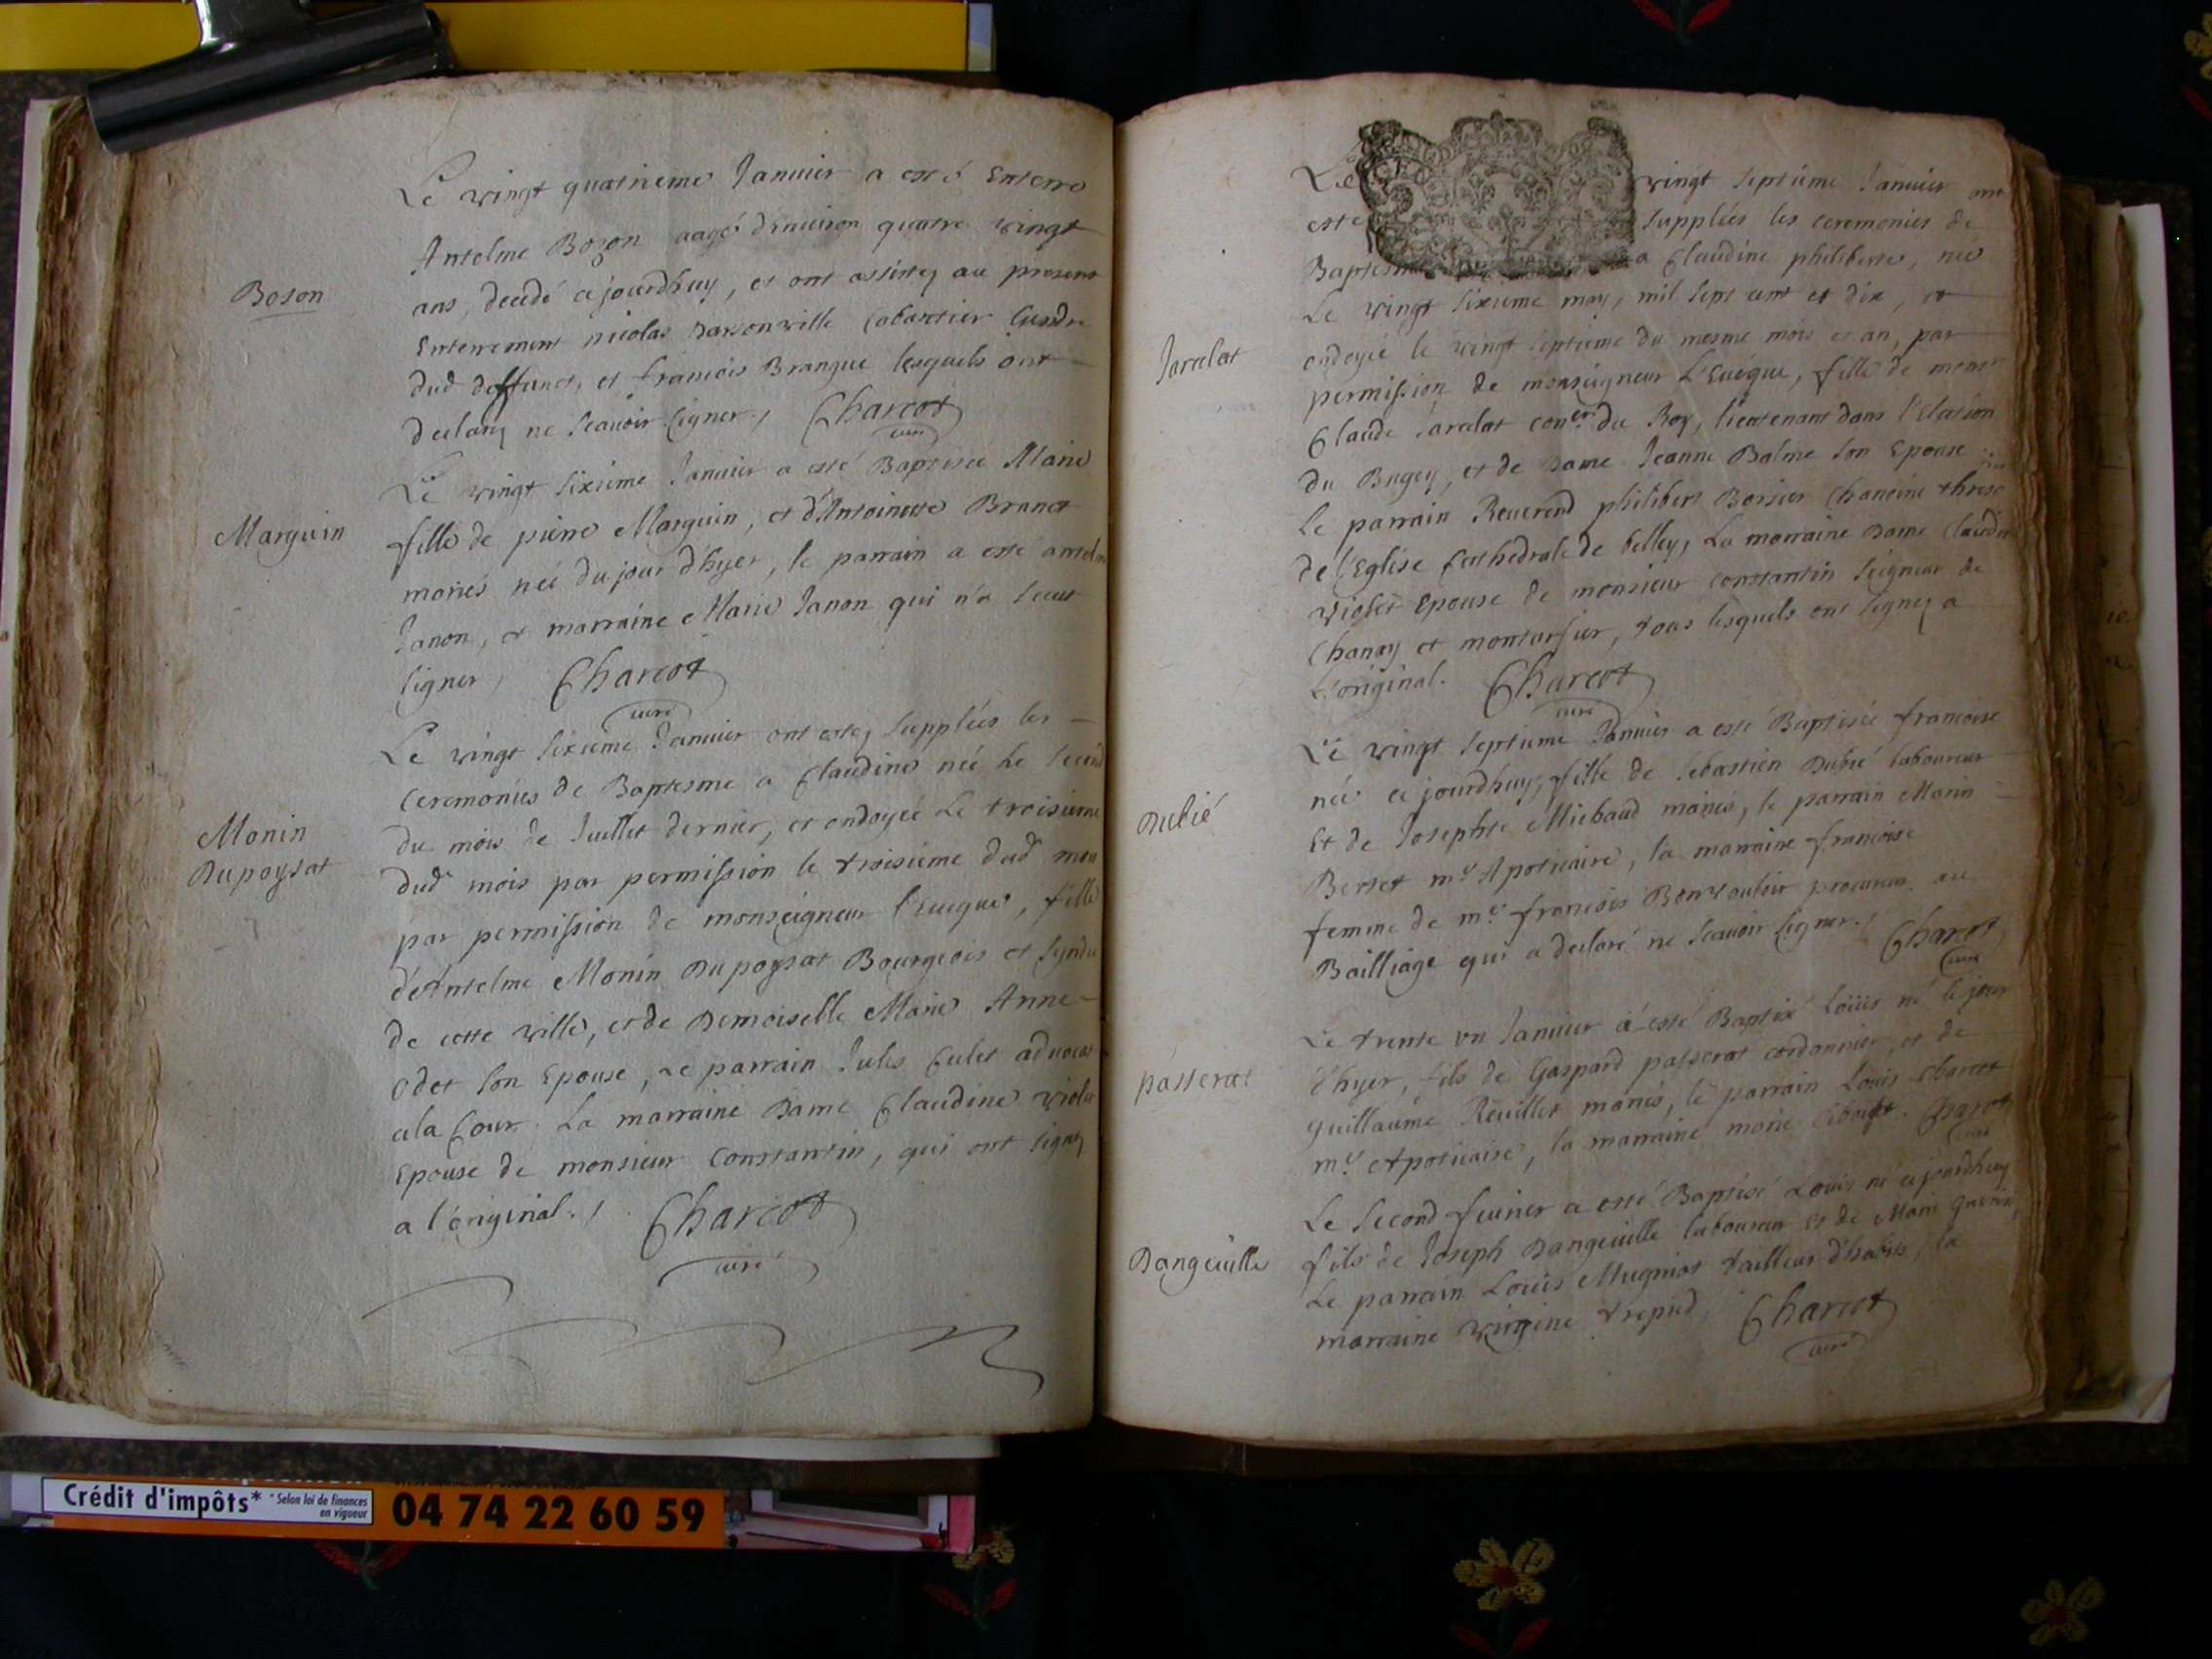 Le vingt quatrieme Januier a esté Enterré
Antelme Bozon aagé d'Enuiron quatre vingt
Boson
ans, decedé cejourdhuy, et ont assistez au present
Enterrement nicolas Darsonville Cabartier Gendre
dud deffunct, et francois Brangue lesquels ont
declaré ne scauoir signer., Charcot
curé
Le vingt sixieme Januier a esté Baptisée Marie
Marguin
fille de pierre Marguin, et d'Antoinette Brunet
mariés née du jour d'hyer, le parrain a esté antelme
Janon, et marraine Marie Janon qui n'a sceut
signer, Charcot
curé
Le vingt sixieme Januier ont estez supplées les
ceremonies de Baptesme a Claudine née Le second
Monin
du mois de Juillet dernier, et ondoyée Le troisieme
Dupoysat
dud mois par permission le troisieme dud mois
par permission de monseigneur l'Eueque, fille
d'Antelme Monin Dupoysat Bourgeois et syndic
de cette ville, et de Demoiselle Marie Anne
Odet son Epouse, Le parrain Jules Culet aduocat
a la Cour. La marraine Dame Claudine violet
Epouse de monsieur Constantin, qui ont signez
a l'original., Charcot
curé
Le vingt septieme Januier ont
esté supplées les ceremonies de
Baptesme a Claudine philiberte, née
Le vingt sixieme may, mil sept cent et dix, et
Jarcelat
ondoyée le vingt septieme du mesme mois et an, par
permission de monseigneur L'Euéque, fille de monsr
Claude Jarcelat coner du Roy, lieutenant dans l'Election
du Bugey, et de Dame Jeanne Balme son Epouse
le parrain Reuerend philibert Borsier Chanoine threso
de l'Eglise Cathedrale de belley, La marraine Dame Claudine
violet Epouse de monsieur Constantin seigneur de
Chanay et montarfier, tous lesquels ont signez a
L'original. Charcot
curé
Le vingt septieme Januier a esté Baptisée francoise
née cejourdhuy, fille de sebastien Dubié laboureur
Dubié
Et de Josephte Michaud mariés, le parrain Marin
Bertet mre Apoticaire, la marraine francoise
femme de mre francois Bonvouloir procureur au
Bailliage qui a declaré ne scauoir signer., Charcot
curé
Le trente un Januier a esté Baptisé Louis né le jour
passerat
d'hyer, fils de Gaspard passerat cordonnier, et de
guillaume Reuillet mariés, le parrain Louis Charcot
mre Apoticaire, la marraine marie Charcot
curé
Le second feurier a esté Baptisé Louis né cejourdhuy
Dangeuille
fils de Joseph Dangeuille laboureur Et de Marie guerin,
Le parrain Louis Mugniot tailleur d'habits, la
marraine virgine trepied, Charcot
curé
Crédit d'impôts* * Selon loi de finances
en vigueur
04 74 22 60 59